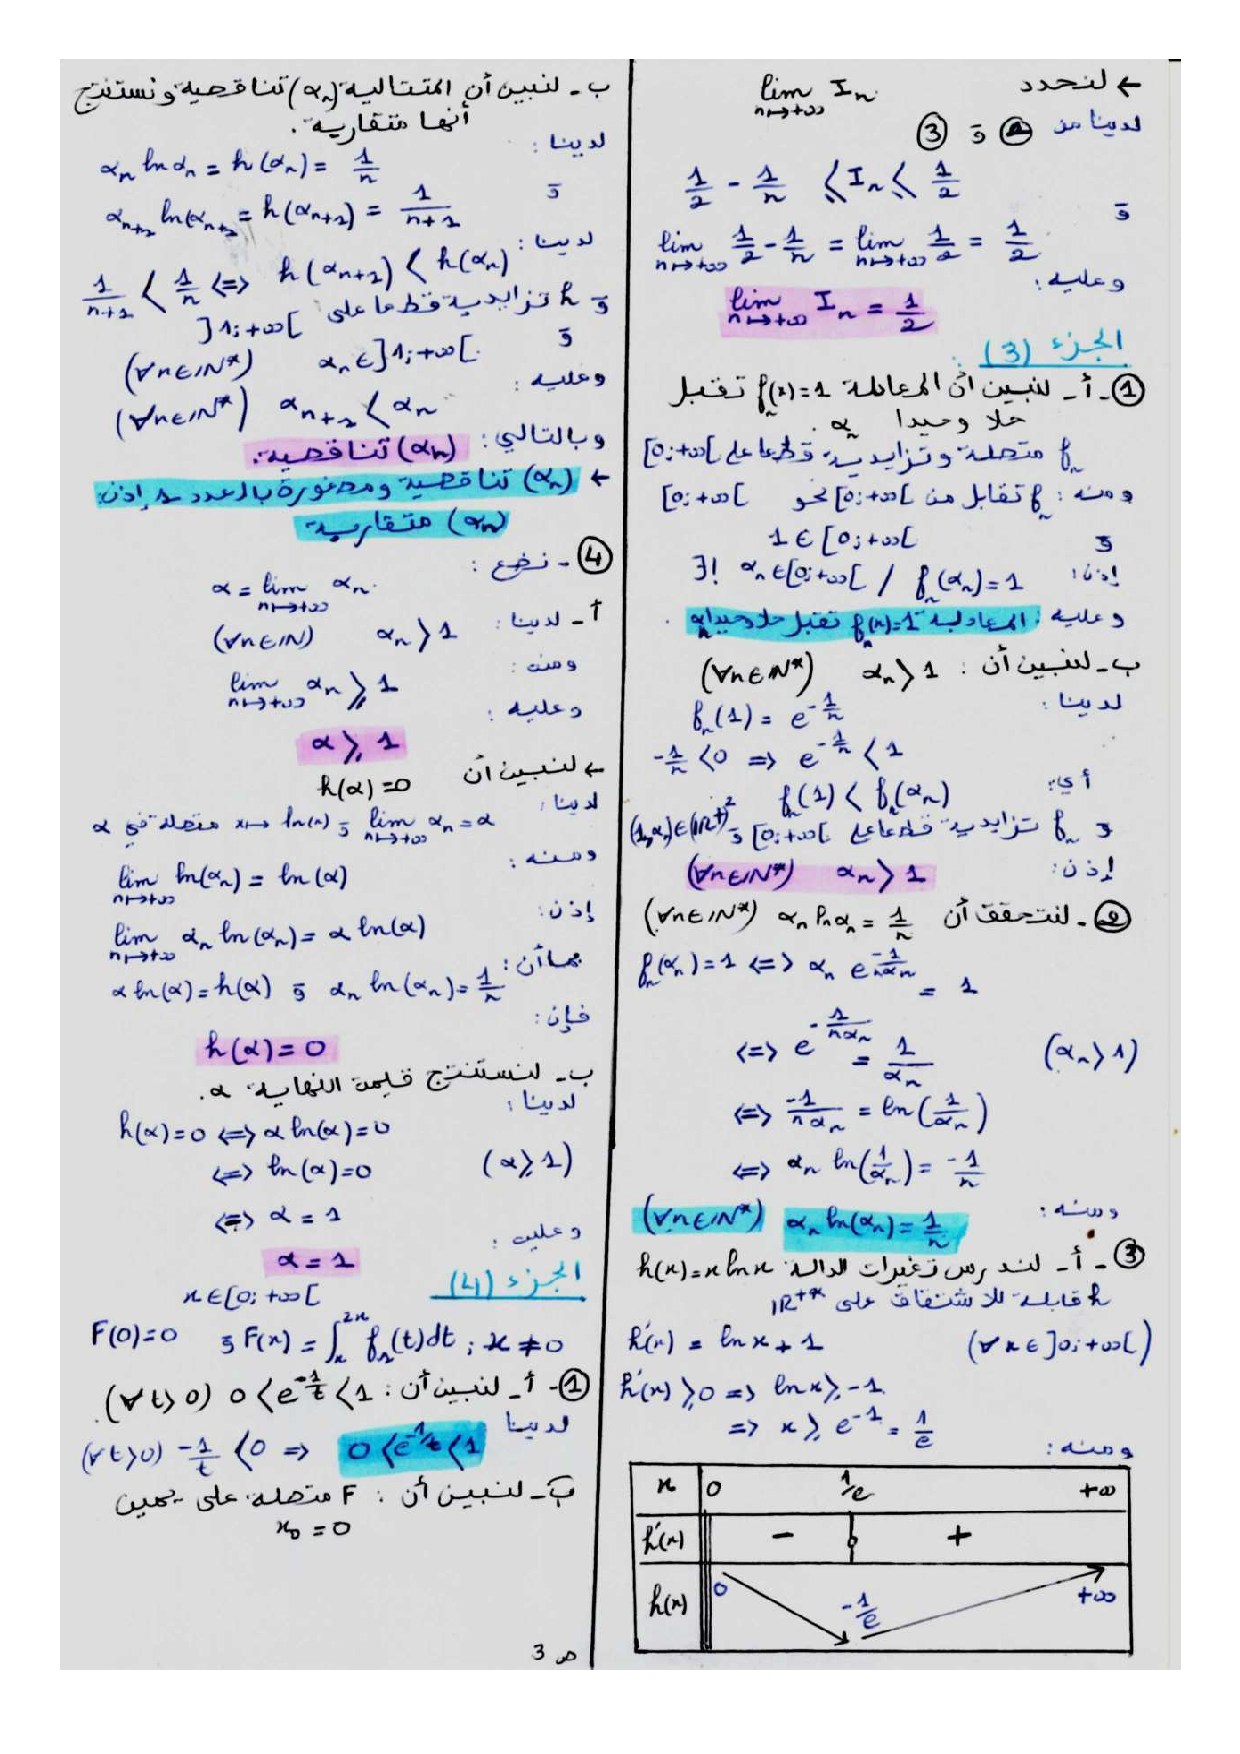 ← لنحدد lim I_n n→+∞
لدينا من ② و ③
1/2 - 1/n ≤ I_n ≤ 1/2
و
lim n→+∞ 1/2 - 1/n = lim n→+∞ 1/2 = 1/2
وعليه:
lim n→+∞ I_n = 1/2
الجزء (3):
① - أ - لنبين أن المعادلة f_n(x)=1 تقبل
حلا وحيدا α_n.
f_n متصلة و تزايدية قطعا على [0;+∞[
ومنه: f_n تقابل من [0;+∞[ نحو [0;+∞[
و 1 ∈ [0;+∞[
إذن: ∃! α_n ∈ [0;+∞[ / f_n(α_n)=1
وعليه: المعادلة f_n(x)=1 تقبل حلا وحيدا α_n.
ب - لنبين أن: α_n > 1 (∀n∈ℕ*)
لدينا:
f_n(1) = e^{-1/n}
-1/n < 0 ⇒ e^{-1/n} < 1
أي: f_n(1) < f_n(α_n)
و f_n تزايدية قطعا على [0;+∞[ و (1,α_n)∈(ℝ⁺)²
إذن: α_n > 1 (∀n∈ℕ*)
② - لنتحقق أن α_n ln α_n = 1/n (∀n∈ℕ*)
f_n(α_n) = 1 ⇔ α_n e^{-1/(nα_n)} = 1
⇔ e^{-1/(nα_n)} = 1/α_n (α_n > 1)
⇔ -1/(nα_n) = ln(1/α_n)
⇔ α_n ln(1/α_n) = -1/n
ومنه: α_n ln(α_n) = 1/n (∀n∈ℕ*)
③ - أ - لندرس تغيرات الدالة h(x) = x ln x
h قابلة للاشتقاق على ℝ⁺*
h'(x) = ln x + 1 (∀x∈]0;+∞[)
h'(x) ≥ 0 ⇒ ln x ≥ -1
⇒ x ≥ e^{-1} = 1/e
ومنه:
x 0 1/e +∞
h'(x) - 0 +
h(x) 0 -1/e +∞
ب - لنبين أن المتتالية (α_n) تناقصية و نستنتج
أنها متقاربة.
لدينا:
α_n ln α_n = h(α_n) = 1/n
و α_{n+1} ln(α_{n+1}) = h(α_{n+1}) = 1/(n+1)
لدينا:
1/(n+1) < 1/n ⇔ h(α_{n+1}) < h(α_n)
و h تزايدية قطعا على ]1;+∞[
و α_n ∈ ]1;+∞[. (∀n∈ℕ*)
وعليه: α_{n+1} < α_n (∀n∈ℕ*)
وبالتالي: (α_n) تناقصية.
← (α_n) تناقصية و مصغورة بالعدد 1 إذن:
(α_n) متقاربة
④ - نضع:
α = lim n→+∞ α_n
أ - لدينا: α_n > 1 (∀n∈ℕ)
ومنه:
lim n→+∞ α_n ≥ 1
وعليه:
α ≥ 1
← لنبين أن h(α)=0
لدينا: lim n→+∞ α_n = α و x↦ln(x) متصلة في α
ومنه:
lim n→+∞ ln(α_n) = ln(α)
إذن:
lim n→+∞ α_n ln(α_n) = α ln(α)
بما أن:
α_n ln(α_n) = 1/n و α ln(α) = h(α)
فإن:
h(α) = 0
ب - لنستنتج قيمة النهاية α.
لدينا:
h(α)=0 ⇔ α ln(α)=0
⇔ ln(α)=0 (α ≥ 1)
⇔ α = 1
وعليه:
α = 1
الجزء (4)
x∈[0;+∞[
F(0)=0 و F(x) = ∫_x^{2x} f_1(t)dt ; x ≠ 0
① - أ - لنبين أن: 0 < e^{-1/t} < 1 (∀t>0).
لدينا (∀t>0) -1/t < 0 ⇒ 0 < e^{-1/t} < 1
ب - لنبين أن: F متصلة على يمين
x_0 = 0
ص 3